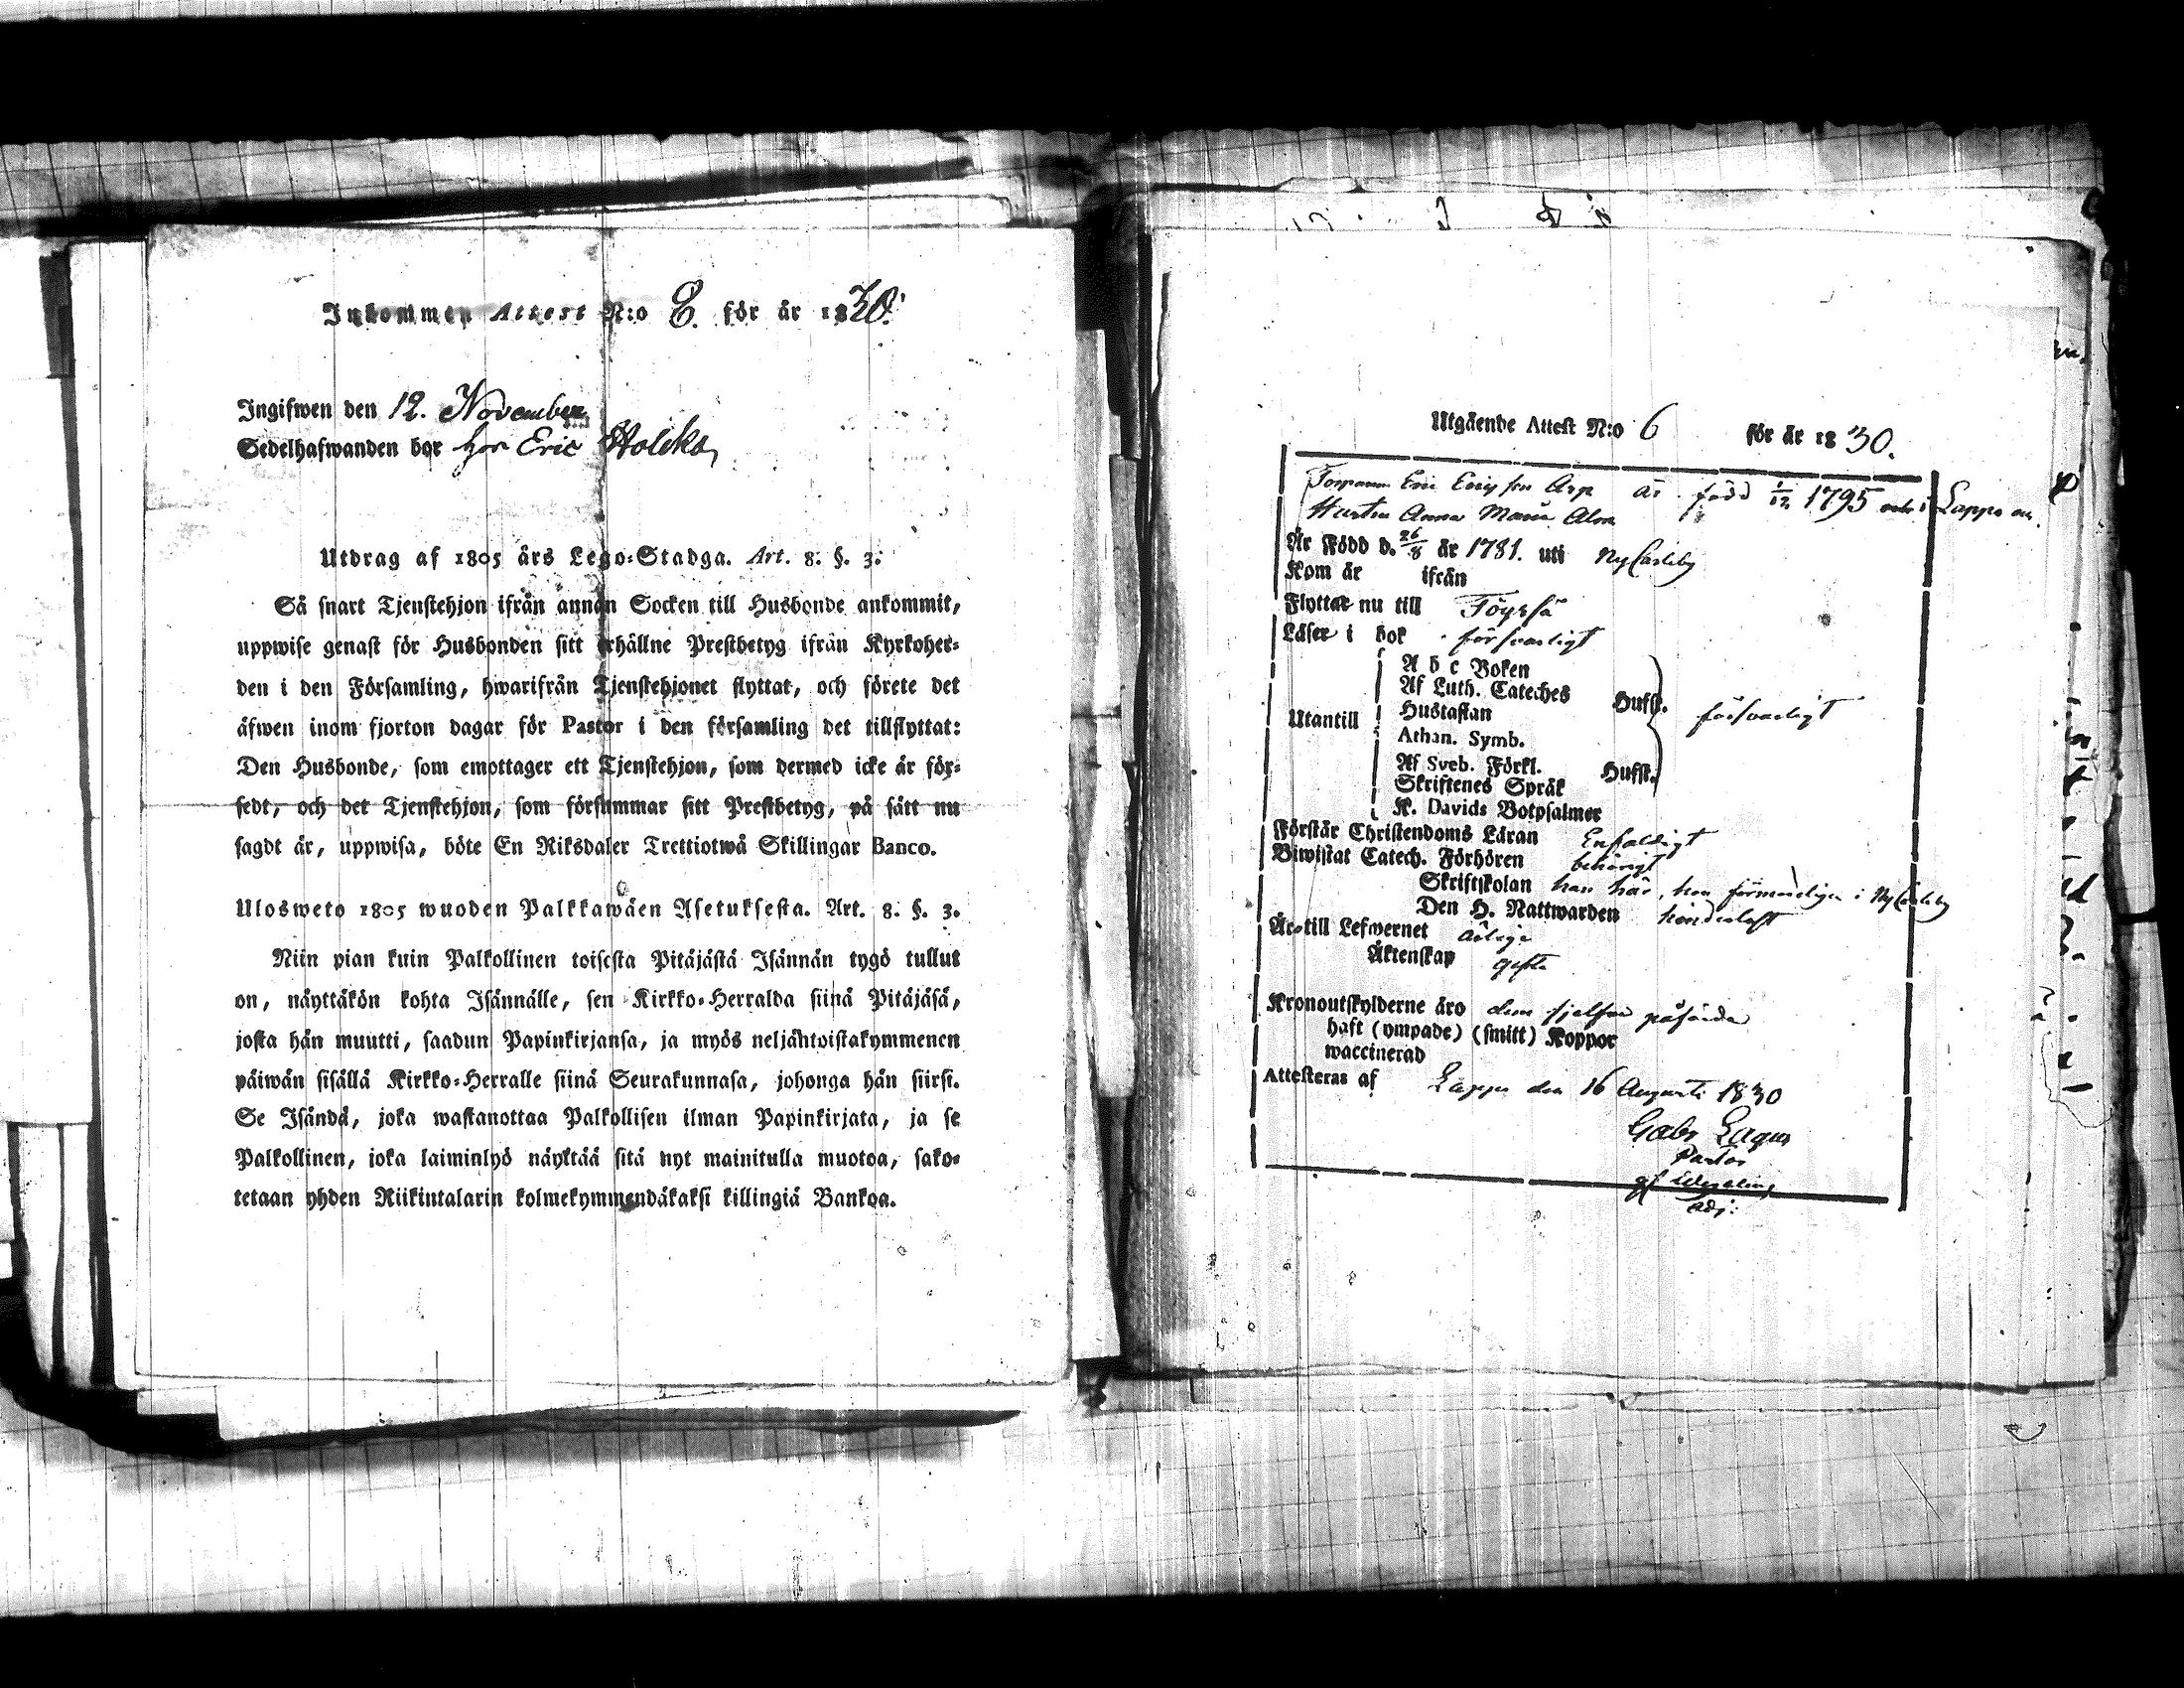 Inkommen Attest N:o 8. för år 1830.
Ingifwen den 12. November
Sedelhafwanden bor hos Eric
Utdrag af 1805 års Lego-Stadga. Art. 8. §. 3.
Så snart Tjenstehjon ifrån annan Socken till Husbonde ankommit,
uppwise genast för Husbonden sitt erhållne Prestbetyg ifrån Kyrkoher-
den i den Församling, hwarifrån Tjenstehjonet flyttat, och förete det
äfwen inom fjorton dagar för Pastor i den församling det tillflyttat:
Den Husbonde, som emottager ett Tjenstehjon, som dermed icke är för-
sedt, och det Tjenstehjon, som försummar sitt Prestbetyg, på sätt nu
sagdt är, uppwisa, böte En Riksdaler Trettiotwå Skillingar Banco.
Ulosweto 1805 wuoden Palkkawäen Asetuksesta. Art. 8. §. 3.
Niin pian kuin Palkollinen toisesta Pitäjästä Isännän tygö tullut
on, näyttäkön kohta Isännälle, sen Kirkko-Herralda siinä Pitäjäsä,
josta hän muutti, saadun Papinkirjansa, ja myös neljähtoistakymmenen
päiwän sisällä Kirkko-Herralle siinä Seurakunnasa, johonga hän siirsi.
Se Isändä, joka wastanottaa Palkollisen ilman Papinkirjata, ja se
Palkollinen, joka laiminlyö näyttää sitä nyt mainitulla muotoa, sako-
tetaan yhden Riikintalarin kolmekymmendäkaksi killingiä Bankoa.
Utgående Attest N:o 6 för år 1830.
Eric Ericsson Arp är född 1/12 1795 och i Lappo
Hustrun Anna Maria
Är Född d. 26/8 år 1781. uti NyCarleby
Kom år ifrån
Flyttar nu till Töysä
Läser i bok försvarligt
A b c Boken
Af Luth. Cateches Hufst.
Utantill Hustaflan försvarligt
Athan. Symb.
Af Sveb. Förkl. Hufst.
Skriftenes Språk
K. Davids Botpsalmer
Förstår Christendoms Läran Enfaldigt
Biwistat Catech. Förhören behörigt
Skriftskolan han här, hon förmodligen i NyCarleby
Den H. Nattwarden
Är till Lefwernet ärlige
Äktenskap gifte
Kronoutskylderne äro dem sjelfva påförda
haft (ympade) (smitt) Koppor
waccinerad
Attesteras af Lappo den 16 Augusti 1830
Gabr Lagus
Pastor
Adj: